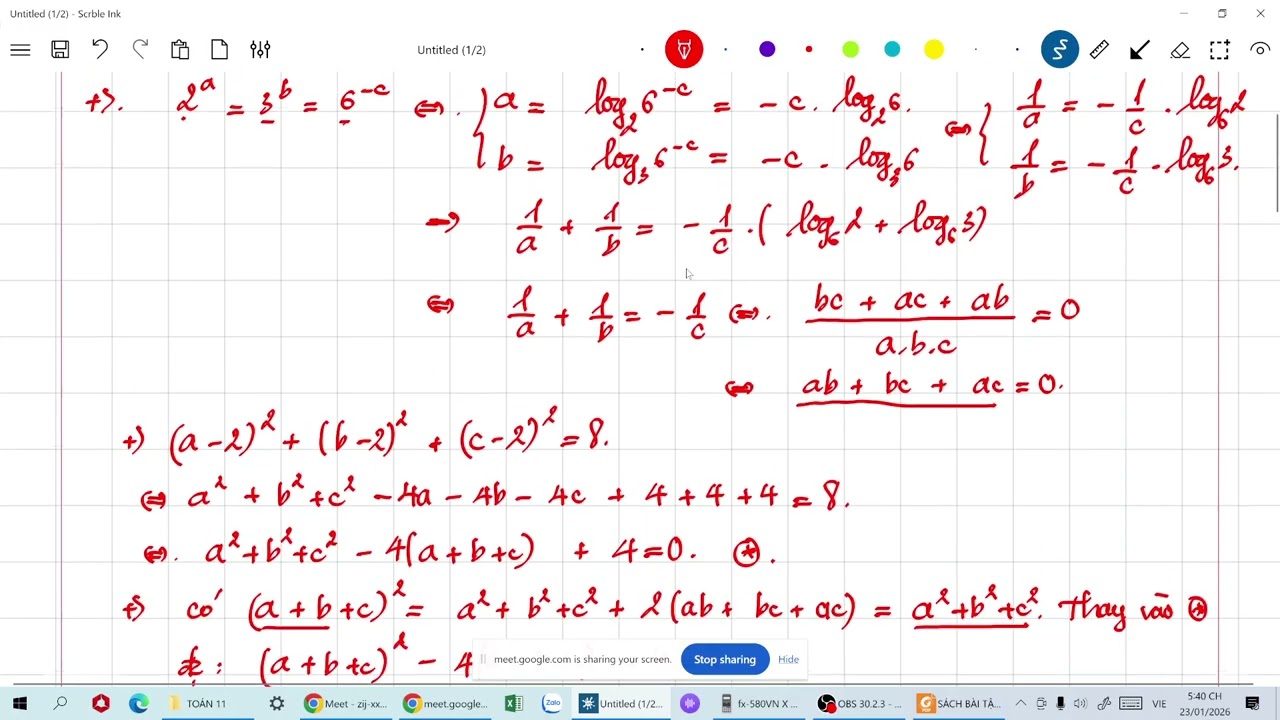 Untitled (1/2) - Scrble Ink
Untitled (1/2)
+). 2^a = 3^b = 6^{-c} ⇔ { a = log_2 6^{-c} = -c . log_2 6. ⇔ { 1/a = - 1/c . log_6 2
b = log_3 6^{-c} = -c . log_3 6 1/b = - 1/c . log_6 3.
→ 1/a + 1/b = - 1/c . ( log_6 2 + log_6 3)
⇔ 1/a + 1/b = - 1/c ⇔. (bc + ac + ab)/(a.b.c) = 0
⇔ ab + bc + ac = 0.
+) (a-2)^2 + (b-2)^2 + (c-2)^2 = 8.
⇔ a^2 + b^2 + c^2 - 4a - 4b - 4c + 4 + 4 + 4 = 8.
⇔. a^2 + b^2 + c^2 - 4(a + b + c) + 4 = 0. (*).
+) có (a + b + c)^2 = a^2 + b^2 + c^2 + 2(ab + bc + ac) = a^2 + b^2 + c^2. Thay vào (*)
: (a + b + c)^2 - 4
meet.google.com is sharing your screen. Stop sharing Hide
TOÁN 11
Meet - zij-xx...
meet.google....
Untitled (1/2...
fx-580VN X ...
OBS 30.2.3 - ...
SÁCH BÀI TẬ...
VIE
5:40 CH
23/01/2026